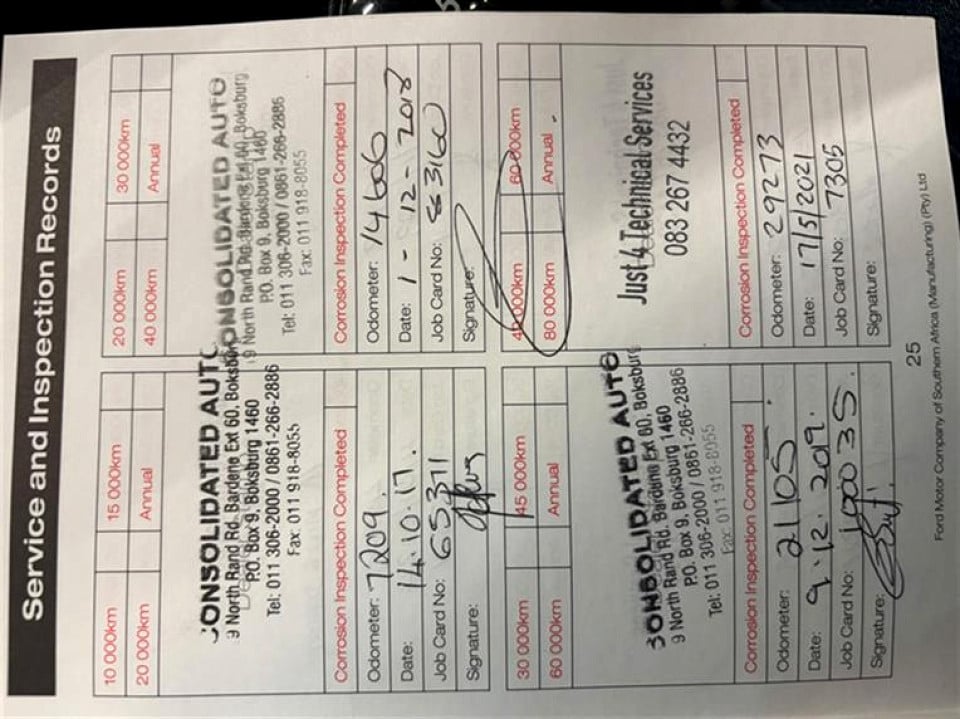 Service and Inspection Records
10 000km 15 000km
20 000km Annual
CONSOLIDATED AUTO
9 North Rand Rd. Bardene Ext 60, Boksburg
P.O. Box 9, Boksburg 1460
Tel: 011 306-2000 / 0861-266-2886
Fax: 011 918-8055
Corrosion Inspection Completed
Odometer: 7209.
Date: 14.10.17.
Job Card No: 65371
Signature:
20 000km 30 000km
40 000km Annual
CONSOLIDATED AUTO
9 North Rand Rd. Bardene Ext 60, Boksburg
P.O. Box 9, Boksburg 1460
Tel: 011 306-2000 / 0861-266-2886
Fax: 011 918-8055
Corrosion Inspection Completed
Odometer: 14606
Date: 1-12-2018
Job Card No:
Signature:
30 000km 45 000km
60 000km Annual
CONSOLIDATED AUTO
9 North Rand Rd. Bardene Ext 60, Boksburg
P.O. Box 9, Boksburg 1460
Tel: 011 306-2000 / 0861-266-2886
Fax: 011 918-8055
Corrosion Inspection Completed
Odometer: 21105.
Date: 9.12.2019.
Job Card No:
Signature:
40 000km 60 000km
80 000km Annual
Just 4 Technical Services
083 267 4432
Corrosion Inspection Completed
Odometer: 29273
Date: 17/5/2021
Job Card No: 7305
Signature:
25
Ford Motor Company of Southern Africa (Manufacturing) (Pty) Ltd